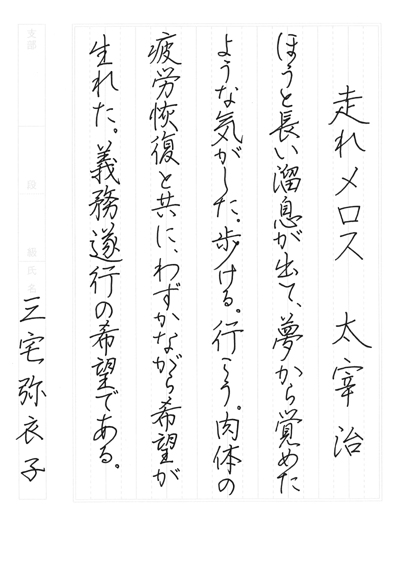 走れメロス 太宰治
ほうと長い溜息が出て、夢から覚めた
ような気がした。歩ける。行こう。肉体の
疲労恢復と共に、わずかながら希望が
生れた。義務遂行の希望である。
支部 段 級 氏名 三宅弥衣子